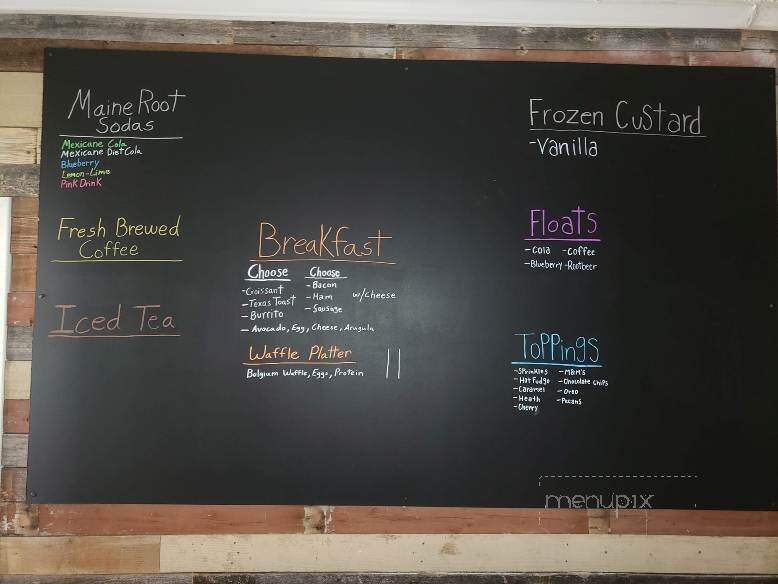 Maine Root
Sodas
Mexicane Cola
Mexicane Diet Cola
Blueberry
Lemon-Lime
Pink Drink
Fresh Brewed
Coffee
Iced Tea
Breakfast
Choose Choose
-Croissant
-Texas Toast
-Burrito
-Bacon
-Ham
-Sausage
w/cheese
-Avocado, Egg, Cheese, Arugula
Waffle Platter
Belgium Waffle, Eggs, Protein
Frozen Custard
-Vanilla
Floats
-Cola -Coffee
-Blueberry -Rootbeer
Toppings
-Sprinkles -M&M's
-Hot Fudge -Chocolate Chips
-Caramel -Oreo
-Heath -Pecans
-Cherry
menupix